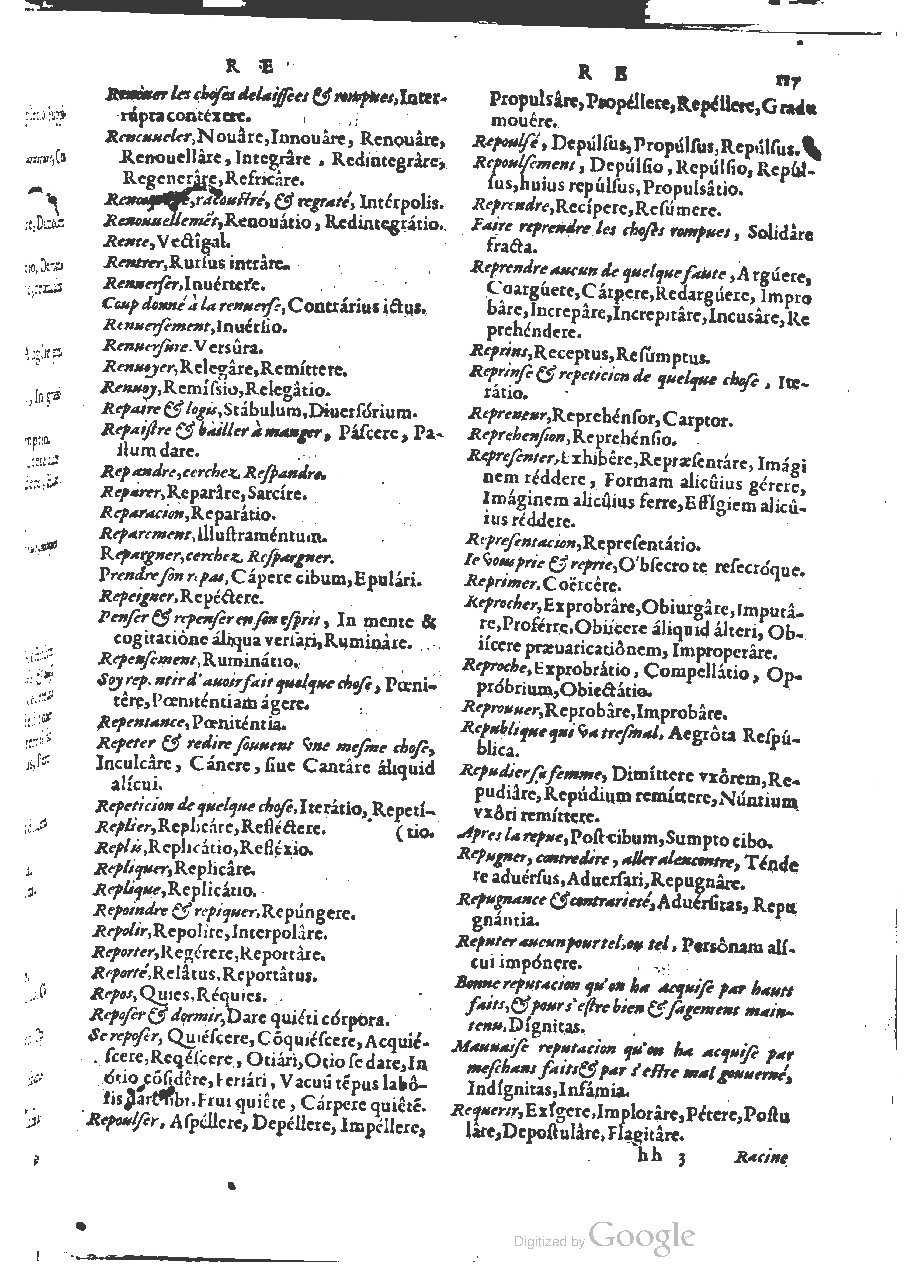 R E
Renouer les choses delaissees & rompues, Inter-
rúpta contéxere.
Renouueler, Nouâre, Innouâre, Renouâre,
Renouellâre, Integrâre, Redintegrâre,
Regenerâre, Refricâre.
racoustré, & regraté, Intérpolis.
Renouuellemẽt, Renouátio, Redintegrátio.
Rente, Vectîgal.
Rentrer, Rursus intrâre.
Renuerser, Inuértere.
Coup donné à la renuerse, Contrárius ictus.
Renuersement, Inuérsio.
Renuersure. Versûra.
Renuoyer, Relegâre, Remíttere.
Renuoy, Remíssio, Relegâtio.
Repaire & logis, Stábulum, Diuersórium.
Repaistre & bailler à manger, Páscere, Pa-
stum dare.
Repandre, cerchez Respandre.
Reparer, Reparâre, Sarcíre.
Reparacion, Reparátio.
Reparement, Illustraméntum.
Repargner, cerchez Respargner.
Prendre son repas, Cápere cibum, Epulári.
Repeigner, Repéctere.
Penser & repenser en son esprit, In mente &
cogitatiône áliqua versari, Rumináre.
Repensement, Ruminátio.
Soy repentir d'auoir fait quelque chose, Pœni-
têre, Pœniténtiam ágere.
Repentance, Pœniténtia.
Repeter & redire souuent vne mesme chose,
Inculcâre, Cánere, siue Cantâre áliquid
alícui.
Repeticion de quelque chose, Iterátio, Repetí-
Replier, Replicáre, Refléctere. (tio.
Replis, Replicátio, Refléxio.
Repliquer, Replicâre.
Replique, Replicátio.
Repoindre & repiquer, Repúngere.
Repolir, Repolíre, Interpolâre.
Reporter, Regérere, Reportâre.
Reporté, Relâtus, Reportâtus.
Repos, Quies, Réquies.
Reposer & dormir, Dare quiéti córpora.
Se reposer, Quiéscere, Cõquiéscere, Acquié-
scere, Reqéscere, Otiári, Otio se dare, In
ótio cõsídêre, Feriári, Vacuũ tẽpus labô-
ris dare sibi. Frui quiête, Cárpere quiêtẽ.
Repoulser, Aspéllere, Depéllere, Impéllere,
R E 117
Propulsâre, Propéllere, Repéllere, Gradu
mouére.
Repoulsé, Depúlsus, Propúlsus, Repúlsus.
Repoulsement, Depúlsio, Repúlsio, Repúl-
sus, huius repúlsus, Propulsâtio.
Reprendre, Recípere, Resúmere.
Faire reprendre les choses rompues, Solidâre
fracta.
Reprendre aucun de quelque faute, Argúere,
Coargúere, Cárpere, Redargúere, Impro
bâre, Increpâre, Increpitâre, Incusâre, Re
prehéndere.
Reprins, Receptus, Resumptus.
Reprinse & repeticion de quelque chose, Ite-
rátio.
Repreneur, Reprehénsor, Carptor.
Reprehension, Reprehénsio.
Representer, Exhibêre, Repræsentáre, Imági
nem réddere, Formam alicûius gérere,
Imáginem alicûius ferre, Effígiem alicû-
ius réddere.
Representacion, Representátio.
Ie vous prie & reprie, O'bsecro te resecróque.
Reprimer, Coërcêre.
Reprocher, Exprobrâre, Obiurgâre, Imputâ-
re, Proférre, Obiícere áliquid álteri, Ob-
iícere præuaricatiônem, Improperâre.
Reproche, Exprobrátio, Compellátio, Op-
próbrium, Obiectátio.
Reprouuer, Reprobâre, Improbâre.
Republique qui va tresmal, Aegrôta Respú-
blica.
Repudier sa femme, Dimíttere vxôrem, Re-
pudiâre, Repúdium remíttere, Núntium
vxôri remíttere.
Apres la repue, Post cibum, Sumpto cibo.
Repugner, contredire, aller alencontre, Ténde
re aduérsus, Aduersari, Repugnâre.
Repugnance & contrarieté, Aduérsitas, Repu
gnántia.
Reputer aucun pour tel, ou tel, Persônam alí-
cui impónere.
Bonne reputacion qu'on ha acquise par hauts
faits, & pour s'estre bien & sagement main-
tenu, Dígnitas.
Mauuaise reputacion qu'on ha acquise par
meschans faits & par s'estre mal gouuerné,
Indígnitas, Infámia.
Requerir, Exígere, Implorâre, Pétere, Postu
lâre, Depostulâre, Flagitâre.
hh 3 Racine
Digitized by Google